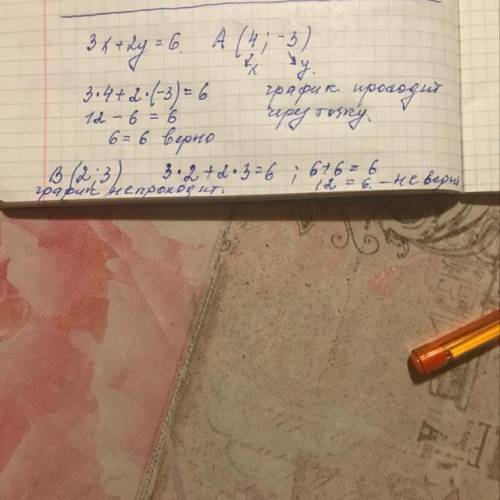 3x+2y=6. A (4; -3)
x y.
3·4+2·(-3)=6 график проходит
12-6=6 через точку.
6=6 верно
B (2; 3) 3·2+2·3=6 ; 6+6=6
график не проходит. 12=6. - не верно